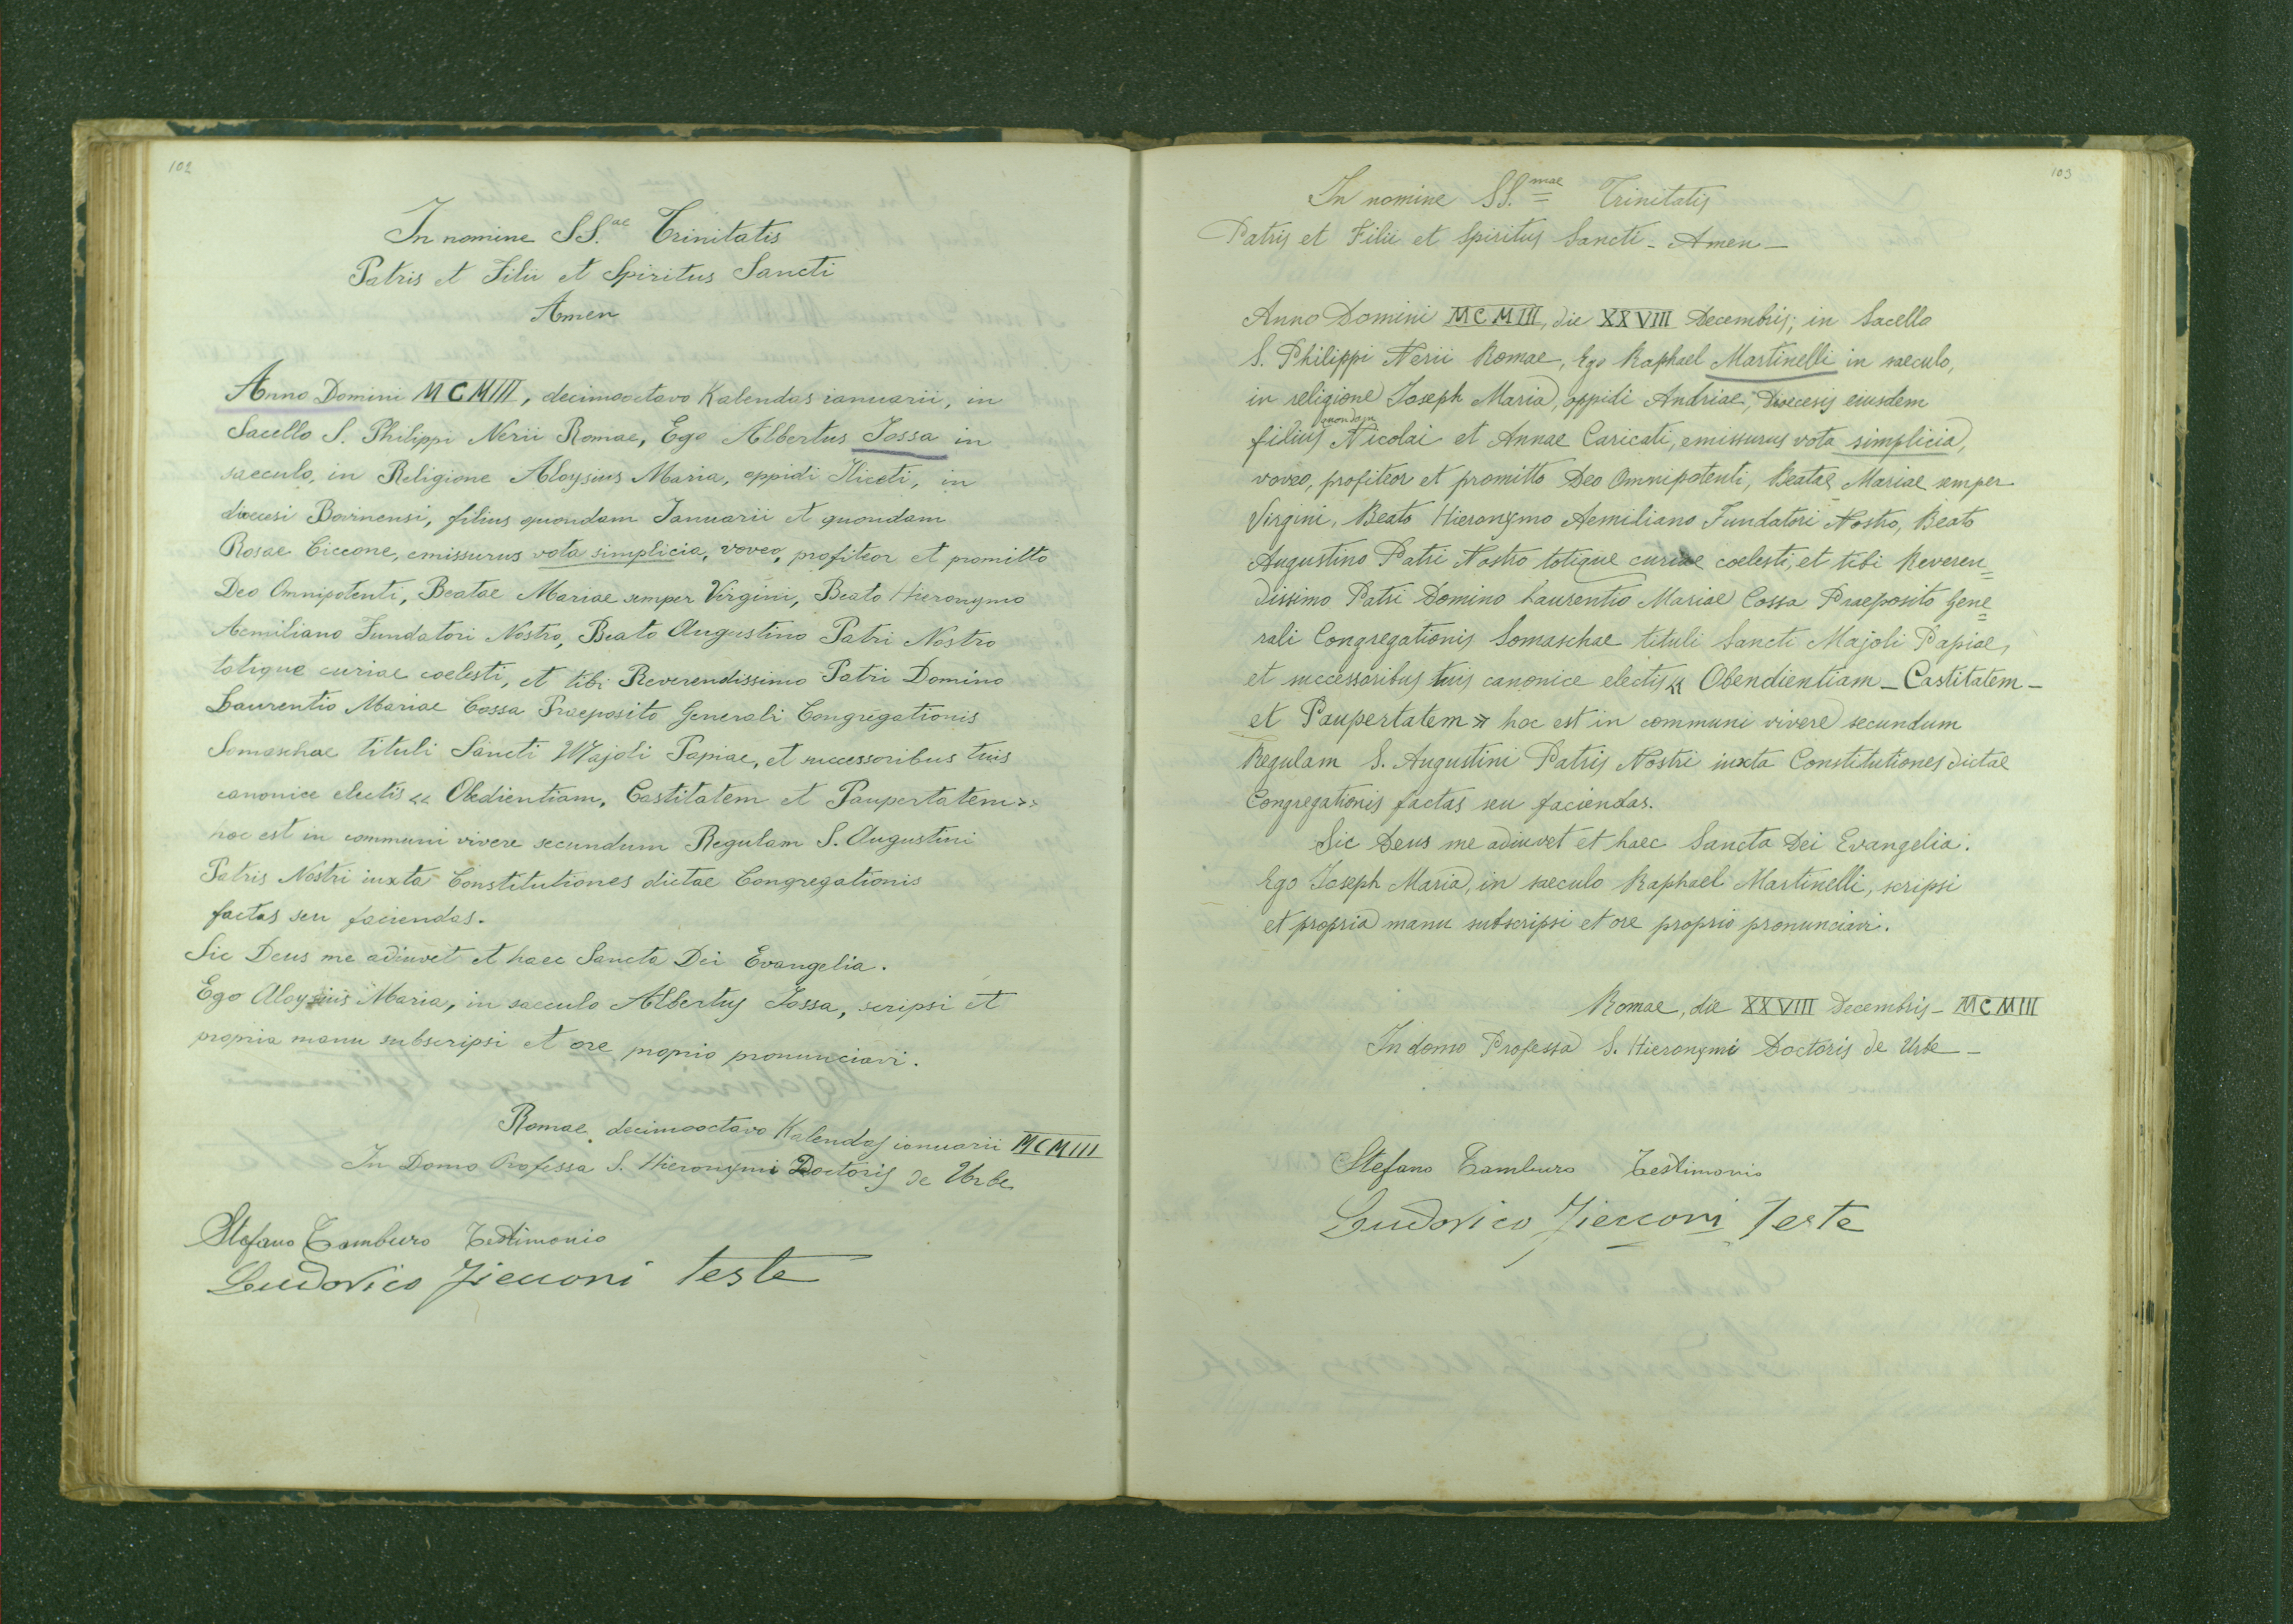 102
In nomine SS.ae Trinitatis
Patris et Filii et Spiritus Sancti
Amen
Anno Domini MCMIII, decimooctavo Kalendas ianuarii, in
Sacello S. Philippi Nerii Romae, Ego Albertus Iossa in
saeculo, in Religione Aloysius Maria, oppidi Iliceti, in
dioecesi Bovinensi, filius quondam Ianuarii et quondam
Rosae Ciccone, emissurus vota simplicia, voveo, profiteor et promitto
Deo Omnipotenti, Beatae Mariae semper Virgini, Beato Hieronymo
Aemiliano Fundatori Nostro, Beato Augustino Patri Nostro
totique curiae coelesti, et tibi Reverendissimo Patri Domino
Laurentio Mariae Cossa Praeposito Generali Congregationis
Somaschae tituli Sancti Majoli Papiae, et successoribus tuis
canonice electis « Obedientiam, Castitatem et Paupertatem »
hoc est in communi vivere secundum Regulam S. Augustini
Patris Nostri iuxta Constitutiones dictae Congregationis
factas seu faciendas.
Sic Deus me adiuvet et haec Sancta Dei Evangelia.
Ego Aloysius Maria, in saeculo Albertus Iossa, scripsi et
propria manu subscripsi et ore proprio pronunciavi.
Romae, decimooctavo Kalendas ianuarii MCMIII
In Domo Professa S. Hieronymi Doctoris de Urbe
Stefano Tamburo Testimonio
Ludovico Zicconi teste
103
In nomine SS.mae Trinitatis
Patris et Filii et Spiritus Sancti - Amen -
Anno Domini MCMIII, die XXVIII Decembris; in Sacello
S. Philippi Nerii Romae, Ego Raphael Martinelli in saeculo,
in religione Ioseph Maria, oppidi Andriae, Dioecesis eiusdem
quondam
filius Nicolai et Annae Caricati, emissurus vota simplicia,
voveo, profiteor et promitto Deo Omnipotenti, Beatae Mariae semper
Virgini, Beato Hieronymo Aemiliano Fundatori Nostro, Beato
Augustino Patri Nostro totique curiae coelesti, et tibi Reveren=
dissimo Patri Domino Laurentio Mariae Cossa Praeposito Gene=
rali Congregationis Somaschae tituli Sancti Majoli Papiae,
et successoribus tuis canonice electis « Obendientiam - Castitatem -
et Paupertatem » hoc est in communi vivere secundum
Regulam S. Augustini Patris Nostri iuxta Constitutiones dictae
Congregationis factas seu faciendas.
Sic Deus me adiuvet et haec Sancta Dei Evangelia.
Ego Ioseph Maria, in saeculo Raphael Martinelli, scripsi
et propria manu subscripsi et ore proprio pronunciavi.
Romae, die XXVIII Decembris - MCMIII
In domo Professa S. Hieronymi Doctoris de Urbe -
Stefano Tamburo Testimonio
Ludovico Zicconi Teste